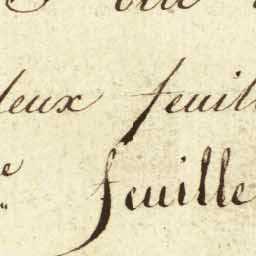 deux feuill
e feuille